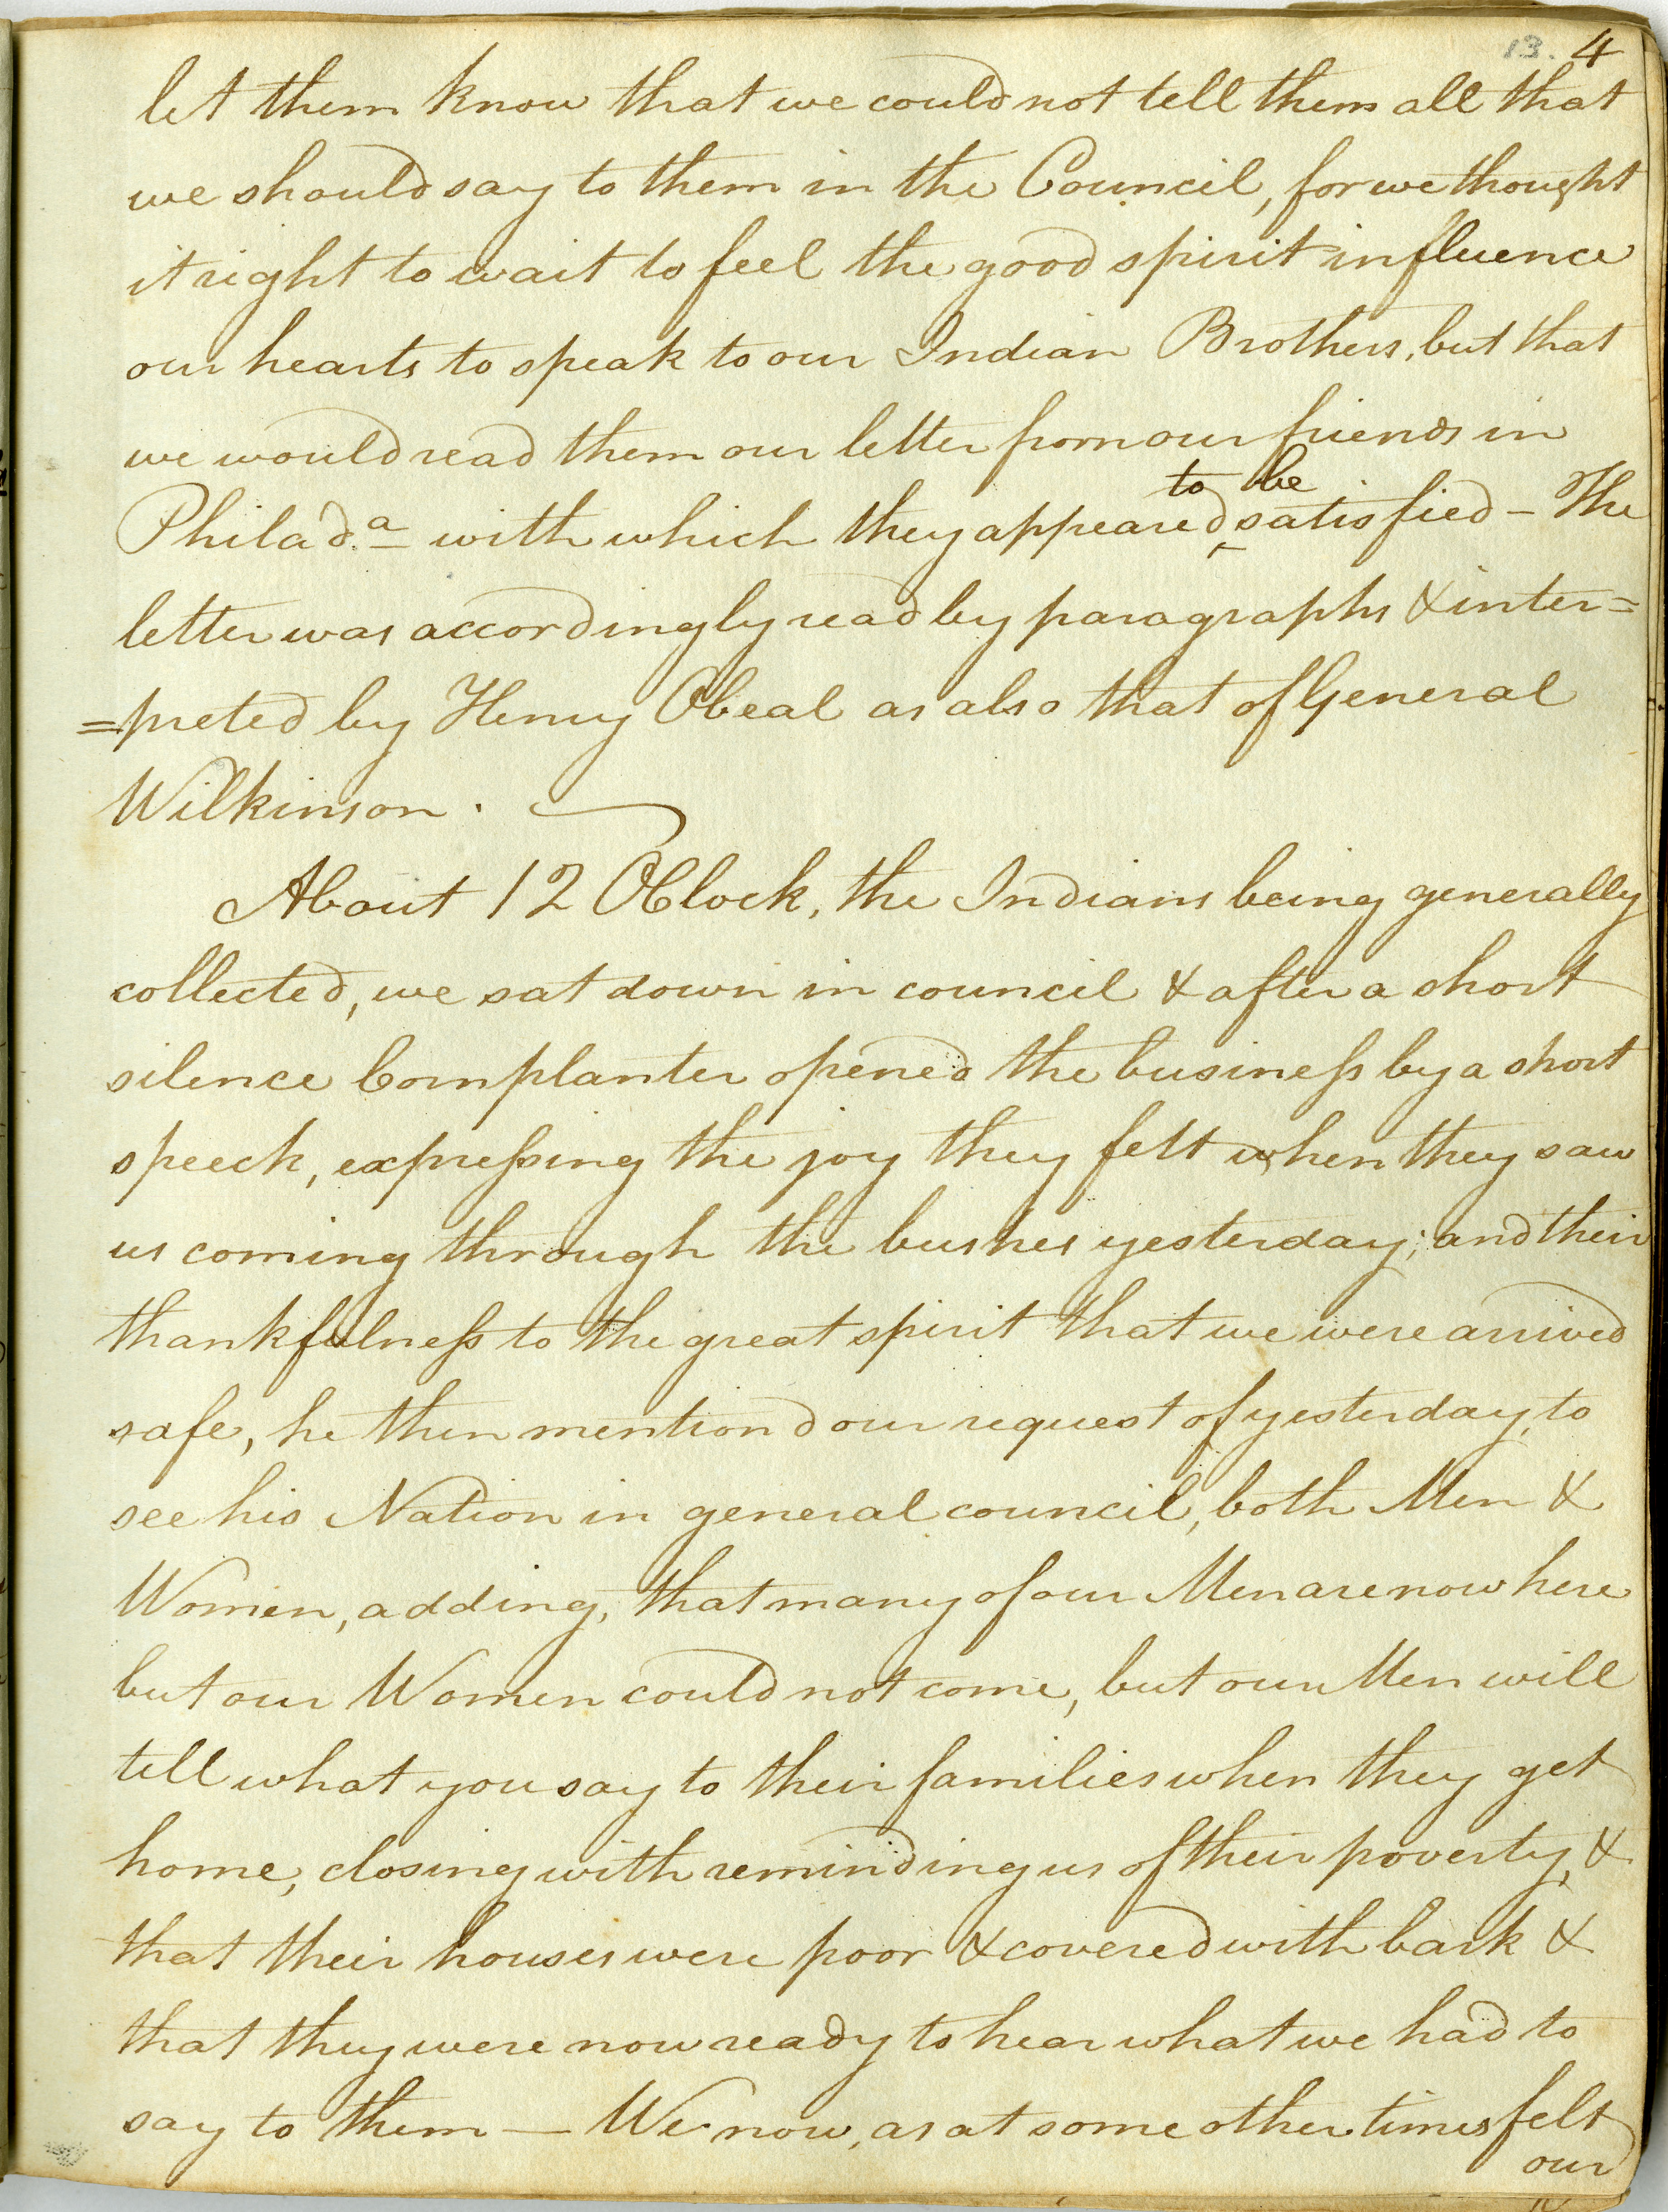 13. 4
let them know that we could not tell them all that
we should say to them in the Council, for we thought
it right to wait to feel the good spirit influence
our hearts to speak to our Indian Brothers, but that
we would read them our letter from our friends in
to be
Philad.a with which they appeared ‸ satisfied – The
letter was accordingly read by paragraphs & inter=
=preted by Henry Obeal as also that of General
Wilkinson.
About 12 OClock, the Indians being generally
collected, we sat down in council & after a short
silence Cornplanter opened the business by a short
speech, expressing the joy they felt when they saw
us coming through the bushes yesterday; and their
thankfulness to the great spirit that we were arrived
safe, he then mention'd our request of yesterday, to
see his Nation in general council, both Men &
Women, adding, that many of our Men are now here
but our Women could not come, but our Men will
tell what you say to their families when they get
home, closing with reminding us of their poverty, &
that their houses were poor & covered with bark &
that they were now ready to hear what we had to
say to them — We now, as at some other times felt
our